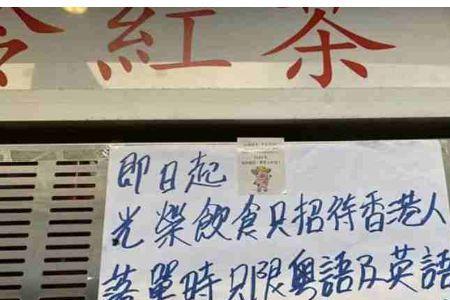 冷紅茶
即日起
光榮飲食只招待香港人
落單時只限粵語及英語